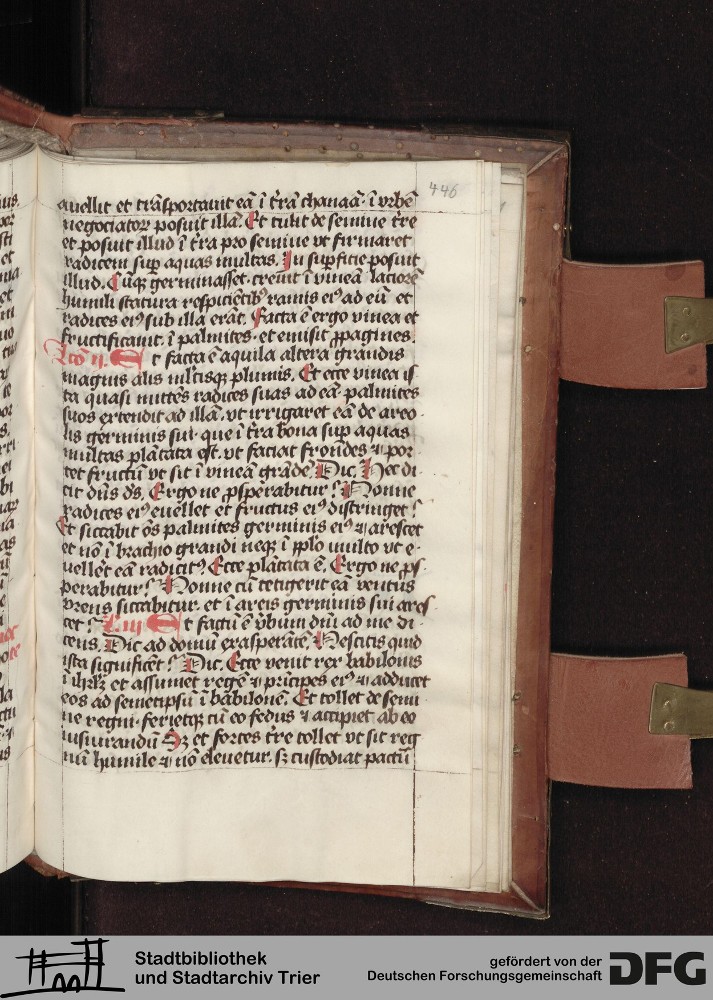 446
auellit et trāsportauit eā ī t̄rā chanaā· ī vrbē
negociator̄ posuit illā. Et tulit de semine t̄re
et posuit illud ī t̄ra pro semine vt firmaret
radicem sup̄ aquas multas. In sup̄ficie posuit
illud. Cūq̄ germinasset· creuit ī vineā laciorē
humili statura respiciētib⁹ ramis ei⁹ ad eū et
radices ei⁹ sub illa erāt. Facta ē ergo vinea et
fructificauit ī palmites· et emisit ꝓpagines.
Lcō ij. Et facta ē aquila altera grandis
magnis alis ml̄tisq̄ plumis. Et ecce vinea is
ta quasi mittēs radices suas ad eā· palmites
suos extendit ad illā· vt irrigaret eā de areo
lis germinis sui· que ī t̄ra bona sup̄ aquas
multas plātata est. vt faciat frondes ⁊ por
tet fructū vt sit ī vineā grādē. Dic. Hec di
cit dn̄s d̄s. Ergo ne ꝓsperabitur? Nonne
radices ei⁹ euellet et fructus ei⁹ distringet?
Et siccabit oēs palmites germinis ei⁹ ⁊ arescet
et nō ī brachio grandi neq̄ ī pp̄lo multo vt e
uelleret eā radicit⁹? Ecce plātata ē. Ergo ne ꝓs
perabitur? Nonne cū tetigerit eā ventus
vrens siccabitur· et ī areis germinis sui ares
cet? L iij Et factū ē v̄bum dn̄i ad me di
cens. Dic ad domū exasperātē. Nescitis quid
ista significēt? Dic. Ecce venit rex babilonis
ī ihrl̄m et assumet regē ⁊ prīcipes ei⁹ ⁊ adducet
eos ad semetipsū ī babilonē. Et tollet de semi
ne regni· ferietq̄ cū eo fedus ⁊ accipiet ab eo
iusiurandū Sꝫ et fortes t̄re tollet vt sit reg
nū humile ⁊ nō eleuetur· sꝫ custodiat pactū
Stadtbibliothek
und Stadtarchiv Trier
gefördert von der
Deutschen Forschungsgemeinschaft
DFG